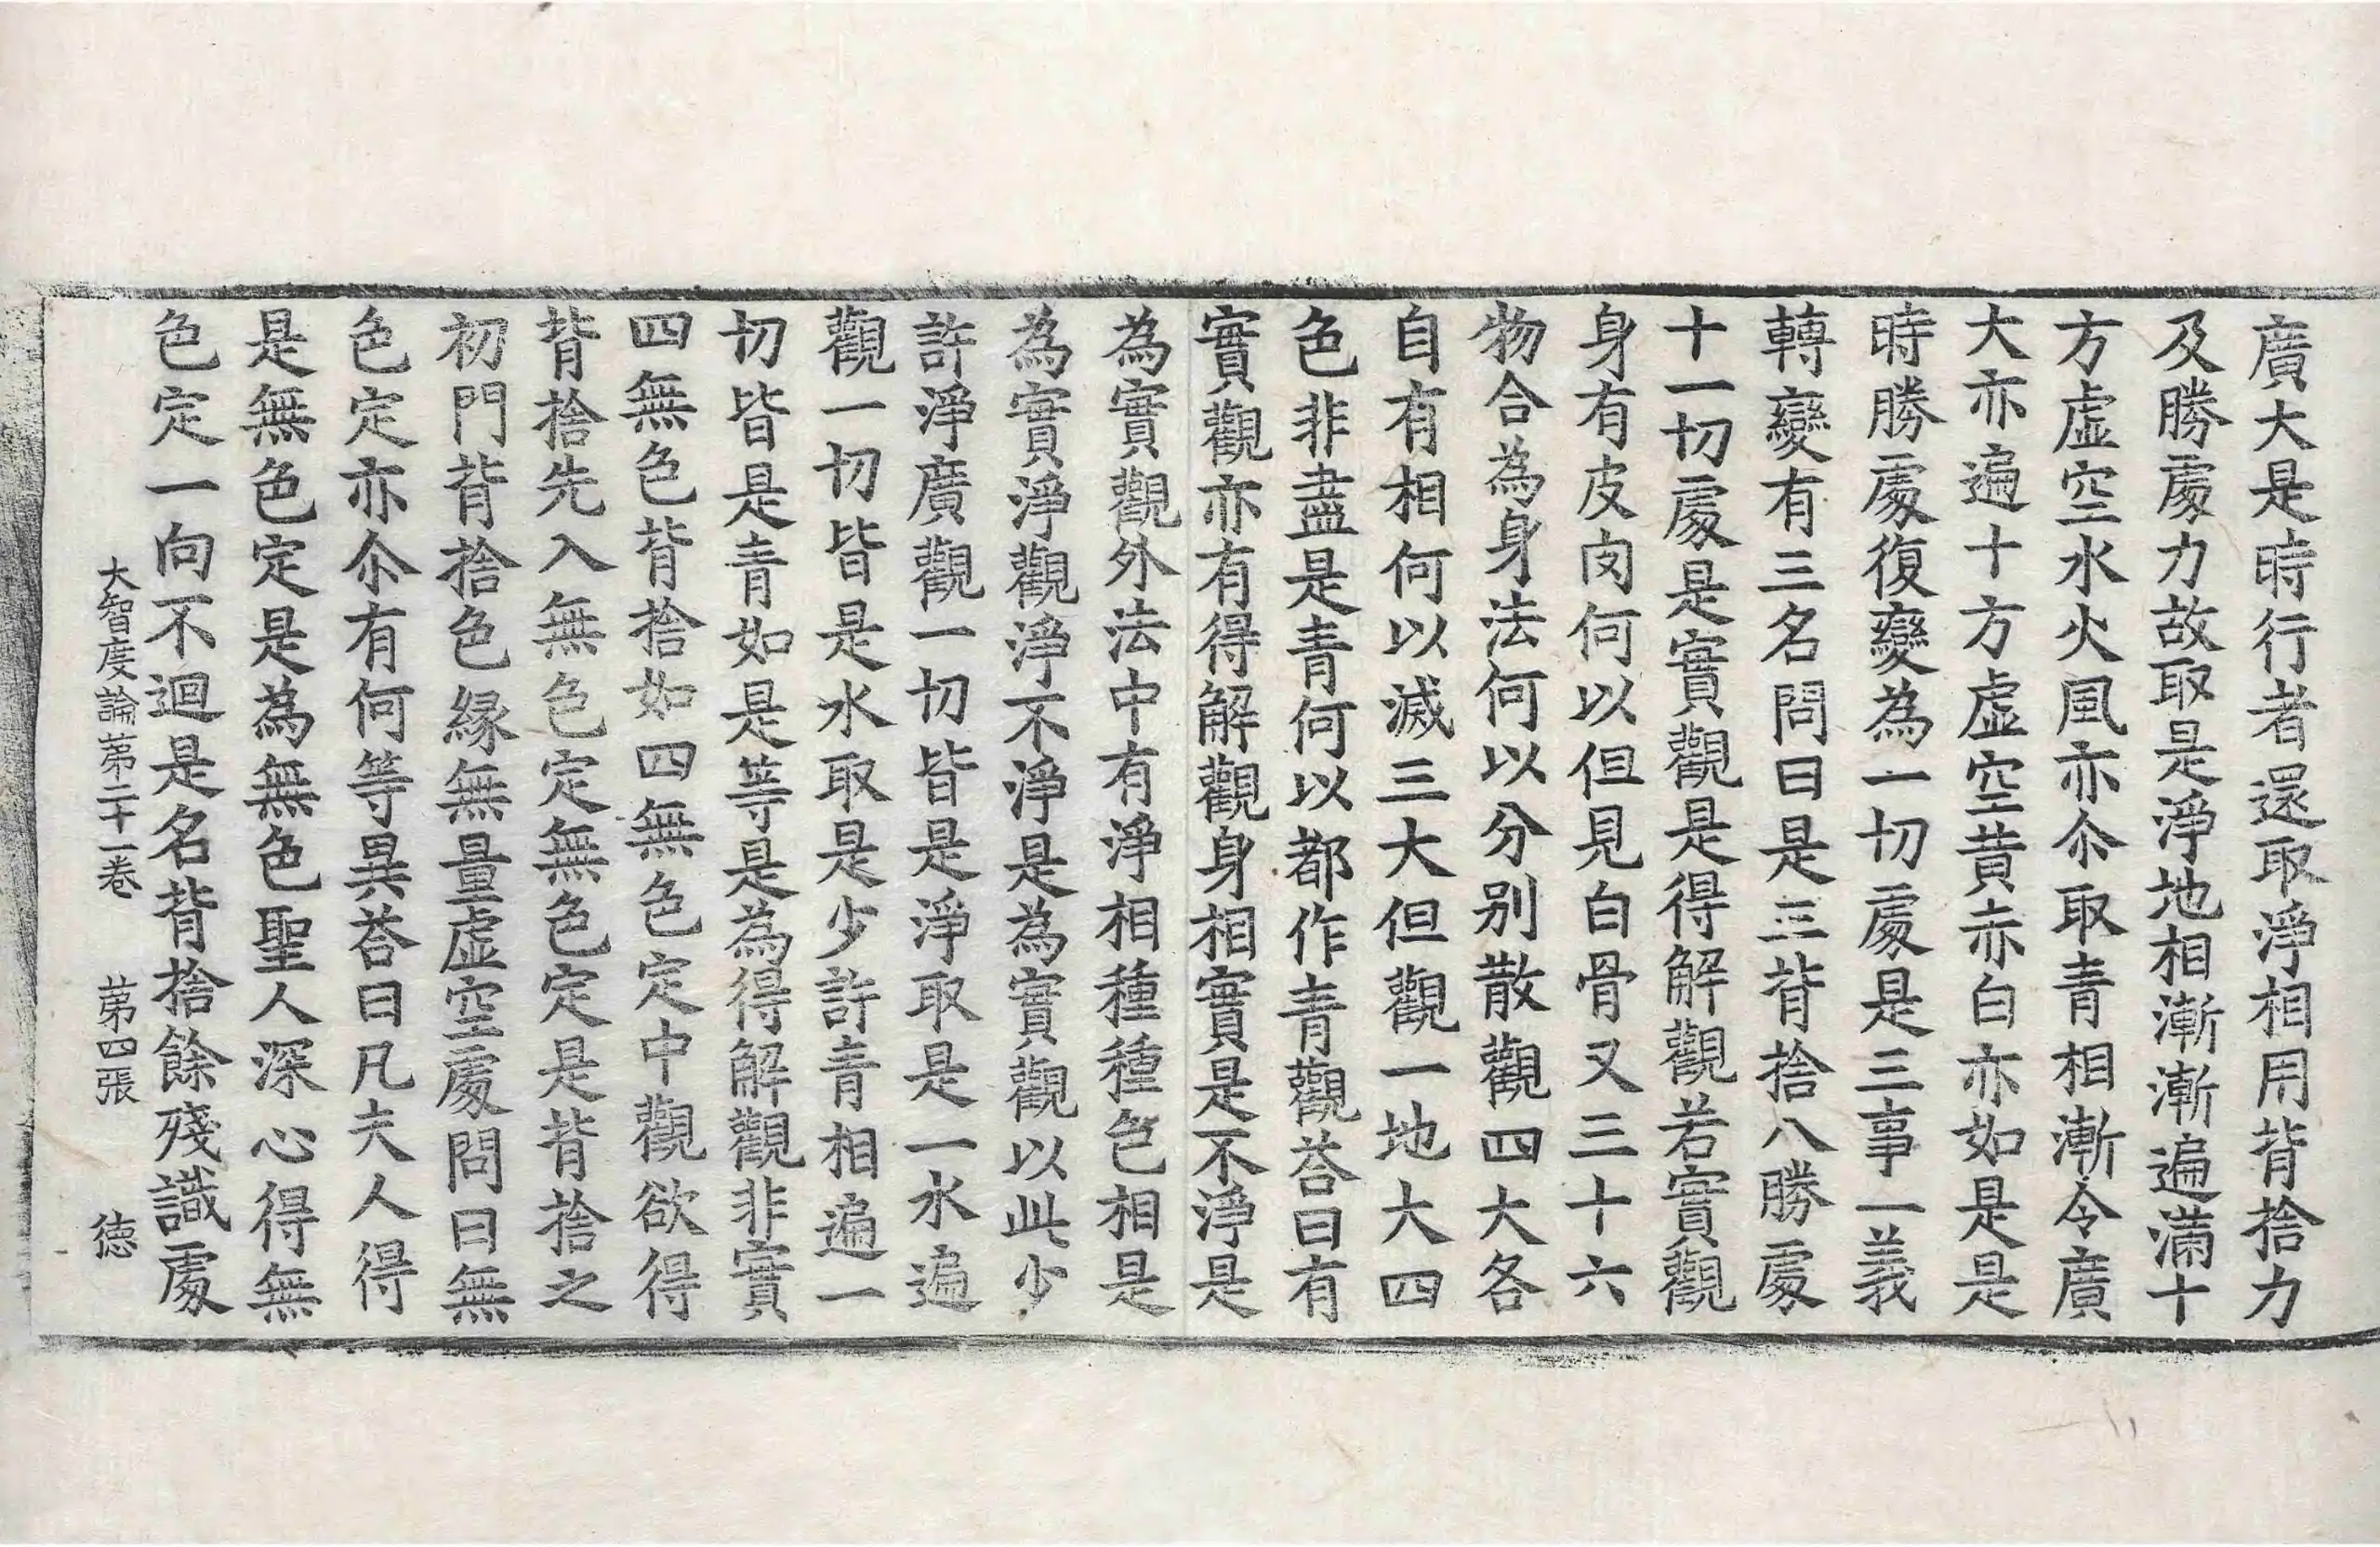 廣大是時行者還取淨相用背捨力
及勝處力故取是淨地相漸漸遍滿十
方虛空水火風亦尒取青相漸令廣
大亦遍十方虛空黃赤白亦如是是
時勝處復變為一切處是三事一義
轉變有三名問曰是三背捨八勝處
十一切處是實觀是得解觀若實觀
身有皮肉何以但見白骨又三十六
物合為身法何以分別散觀四大各
自有相何以滅三大但觀一地大四
色非盡是青何以都作青觀荅曰有
實觀亦有得解觀身相實是不淨是
為實觀外法中有淨相種種色相是
為實淨觀淨不淨是為實觀以此少
許淨廣觀一切皆是淨取是一水遍
觀一切皆是水取是少許青相遍一
切皆是青如是等是為得解觀非實
四無色背捨如四無色定中觀欲得
背捨先入無色定無色定是背捨之
初門背捨色緣無量虛空處問曰無
色定亦尒有何等異荅曰凡夫人得
是無色定是為無色聖人深心得無
色定一向不迴是名背捨餘殘識處
大智度論第二十一卷 第四張 徳